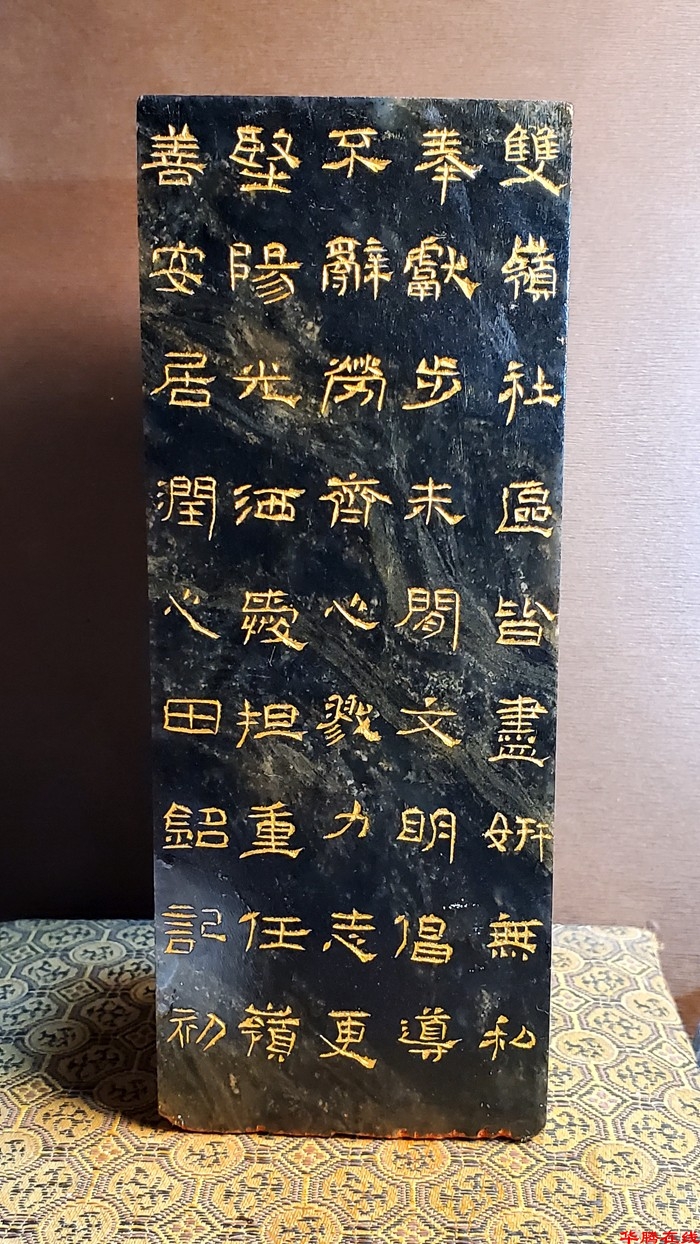 雙嶺社區皆盡妍無私
奉獻步未閒文明倡導
不辭勞齊心戮力志更
堅陽光洒愛担重任嶺
善安居潤心田銘記初
华腾在线